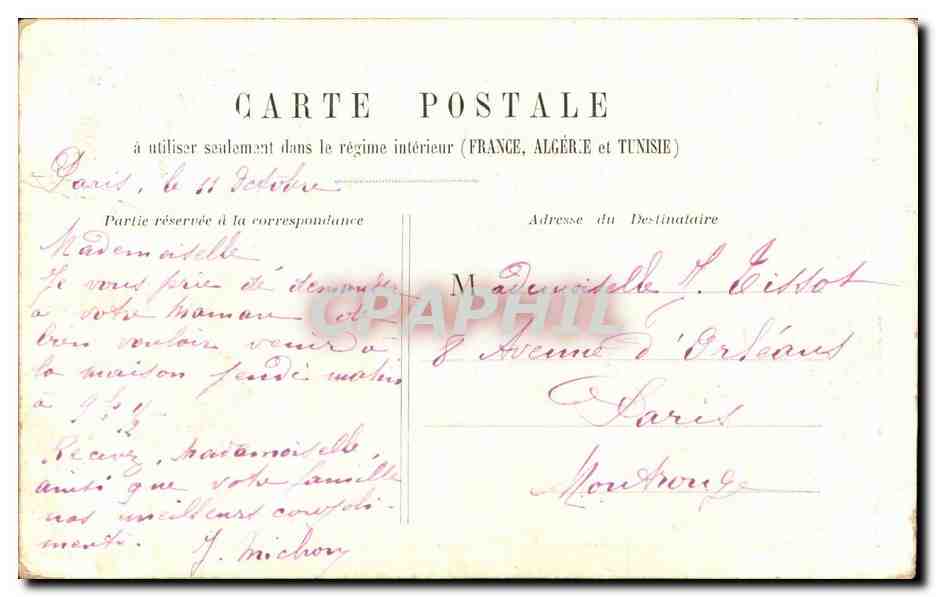 CARTE POSTALE
à utiliser seulement dans le régime intérieur (FRANCE, ALGÉRIE et TUNISIE)
Paris, le 11 Octobre
Partie réservée à la correspondance
Mademoiselle
Je vous prie de demander
à votre maman de
bien vouloir venir à
la maison jeudi matin
à 9h 1/2
Recevez, Mademoiselle,
ainsi que votre famille
nos meilleurs compli-
ments.
J. Michon
Adresse du Destinataire
Mademoiselle J. Tissot
8 Avenue d'Orléans
Paris
Montrouge
CPAPHIL